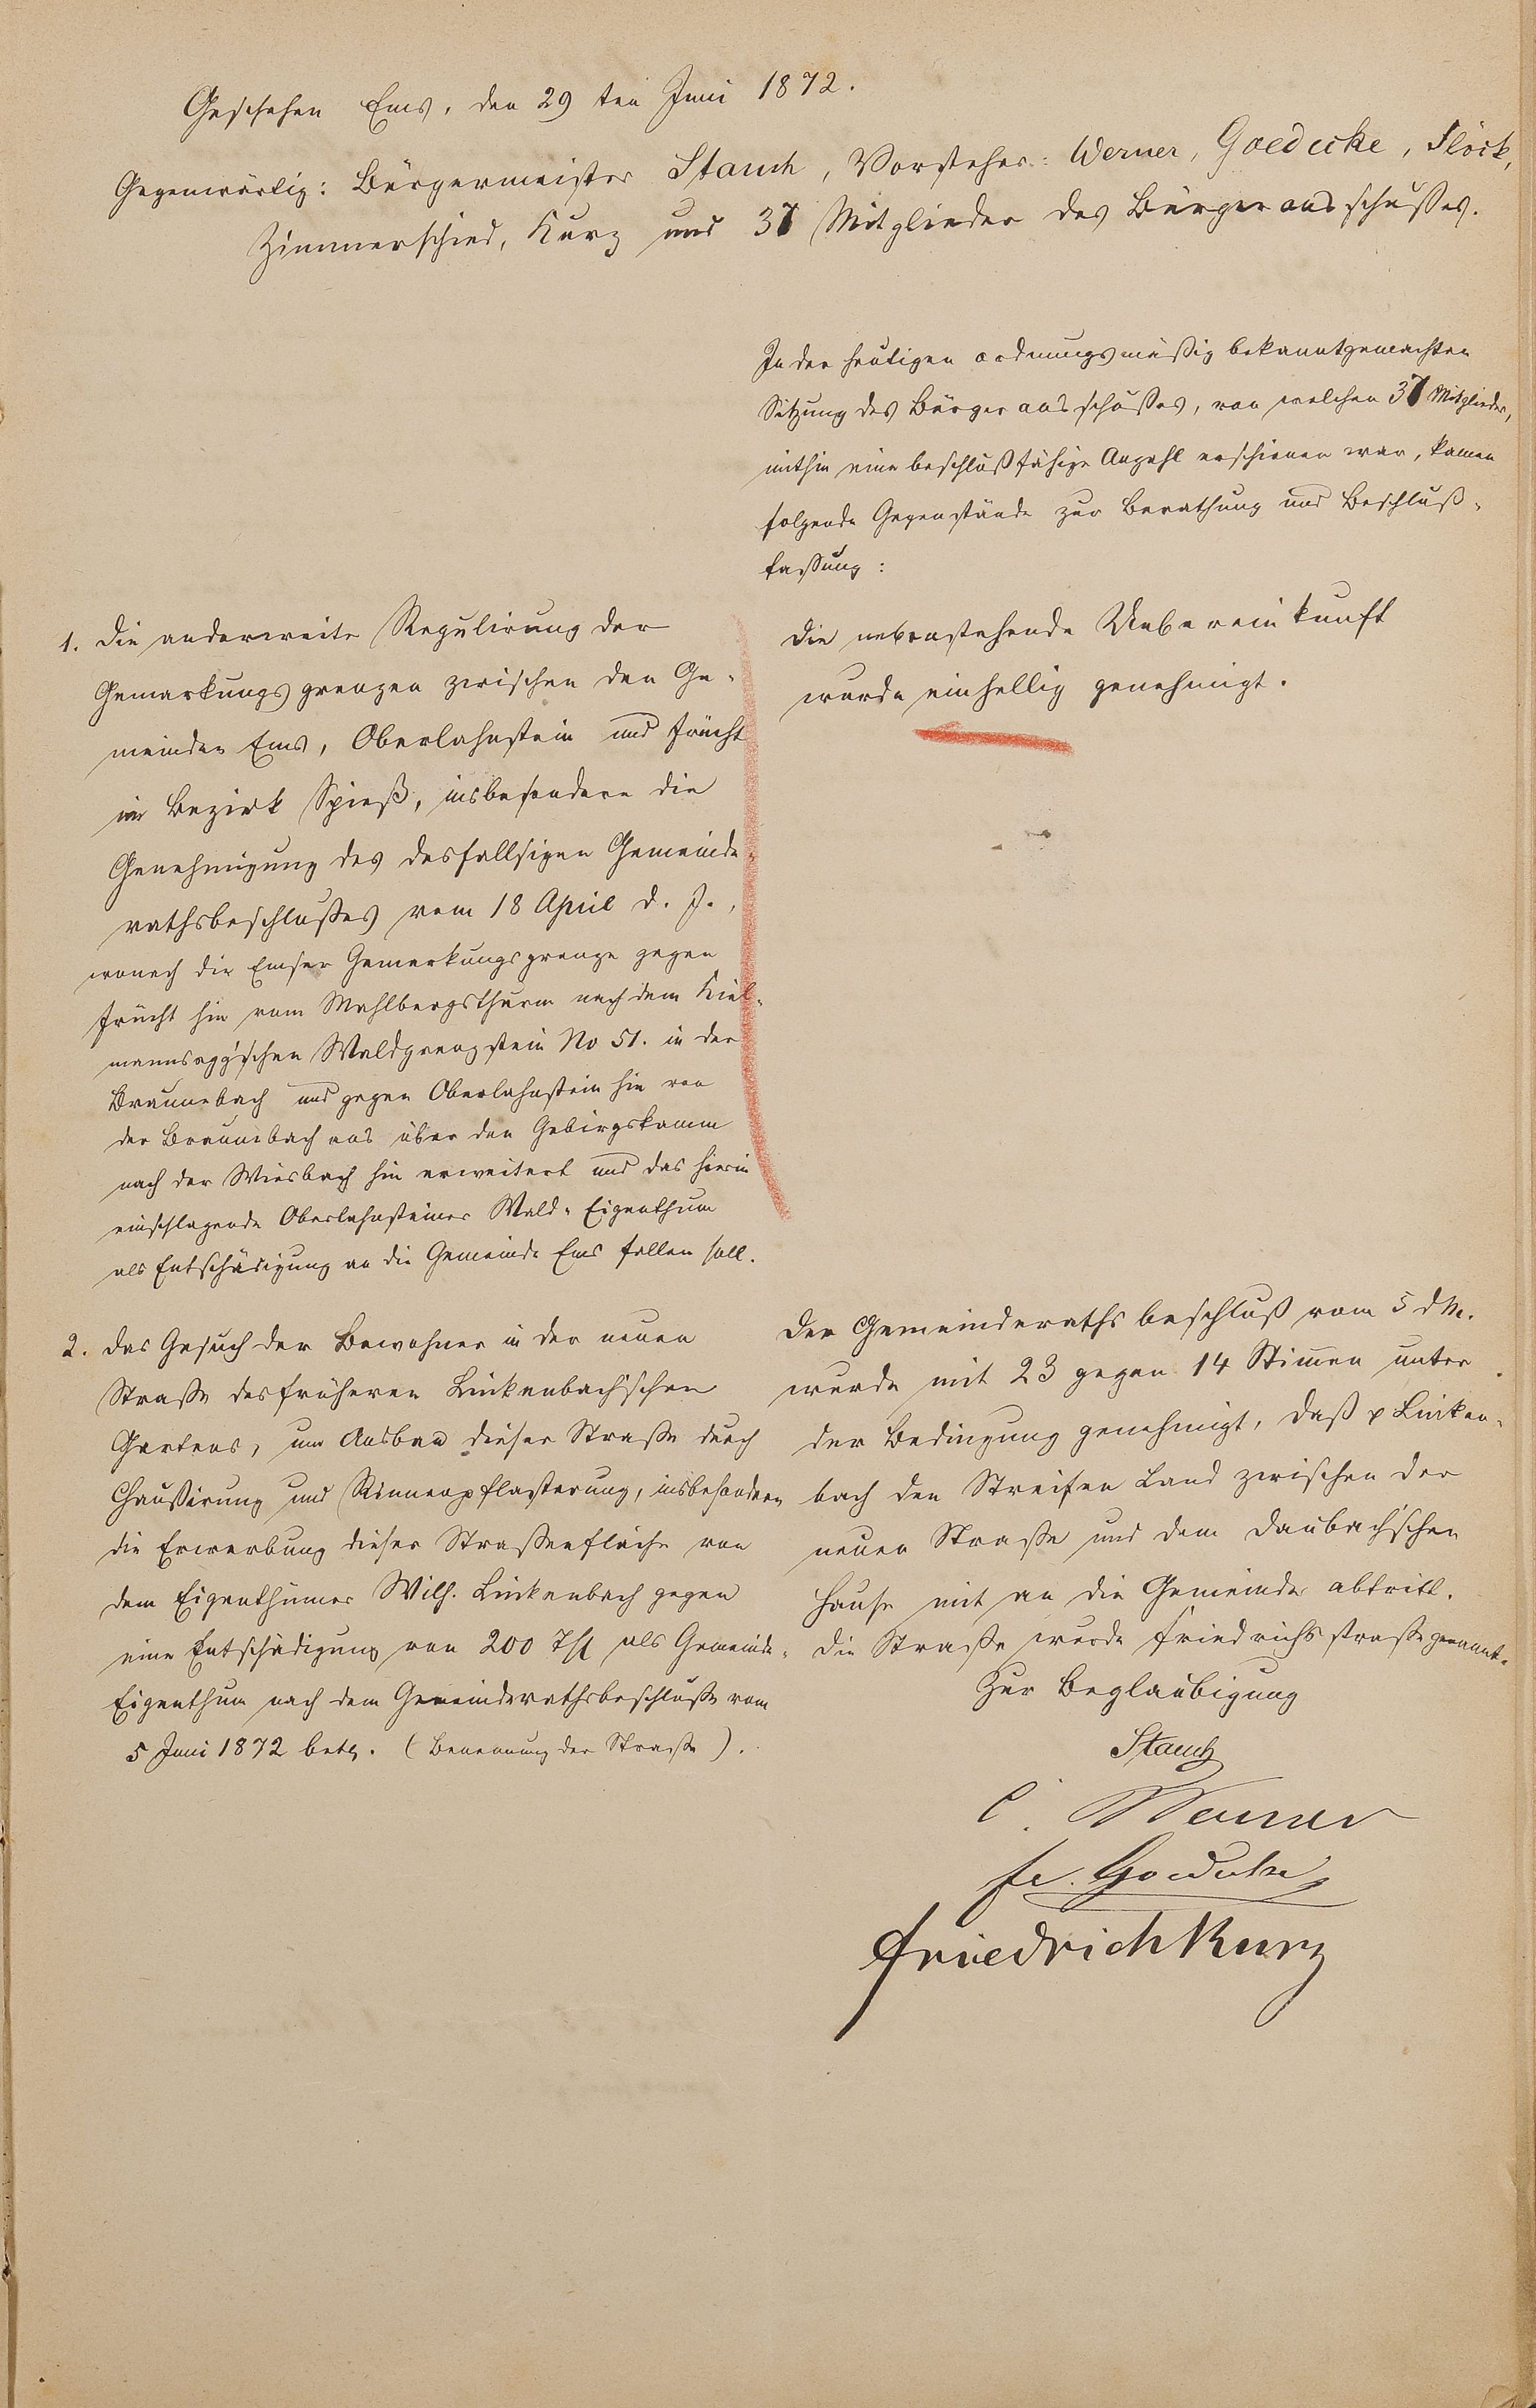 Geschehen Ems, den 29 ten Juni 1872.
Gegenwärtig: Bürgermeister Stauch, Vorsteher: Werner, Goedecke, Flöck,
Zimmerschied, Kurz und 37 Mitglieder des Bürgerausschußes.
In der heutigen ordnungsmäßig bekanntgemachten
Sitzung des Bürgerausschußes, von welchen 37 Mitglieder,
mithin eine beschlußfähige Anzahl erschienen war, kamen
folgende Gegenstände zur Berathung und Beschluß-
faßung:
1. Die anderweite Regulirung der
Gemarkungsgrenzen zwischen den Ge-
meinden Ems, Oberlahnstein und Frücht
im Bezirk Spieß, insbesondere die
Genehmigung des desfallsigen Gemeinde-
rathsbeschlußes vom 18 April d. J.,
wonach die Emser Gemarkungsgrenze gegen
Frücht hin vom Mahlbergsthurm nach dem Kiel-
mannsegg'schen Waldgrenzstein No 51. in der
Braunebach und gegen Oberlahnstein hin von
der Braunebach aus über den Gebirgskamm
nach der Wiesbach hin erweitert und das hierin
einschlagende Oberlahnsteiner Wald-Eigenthum
als Entschädigung an die Gemeinde Ems fallen soll.
Die nebenstehende Uebereinkunft
wurde einhellig genehmigt.
2. Das Gesuch der Bewohner in der neuen
Straße des früheren Linkenbach'schen
Gartens, um Ausbau dieser Straße durch
Chaußirung und Rinnenpflasterung, insbesondere
die Erwerbung dieser Straßenfläche von
dem Eigenthümer Wilh. Linkenbach gegen
eine Entschädigung von 200 Thl als Gemeinde-
Eigenthum nach dem Gemeinderathsbeschluße vom
5 Juni 1872 betr. (Benennung der Straße).
Der Gemeinderathsbeschluß vom 5 d M.
wurde mit 23 gegen 14 Stimen unter
der Bedingung genehmigt, daß p Linken-
bach den Streifen Land zwischen der
neuen Straße und dem Daubach'schen
Hause mit an die Gemeinde abtritt.
Die Straße wurde Friedrichsstraße genannt.
Zur Beglaubigung
Stauch
C. Werner
Fr. Goedecke
Friedrich Kurz